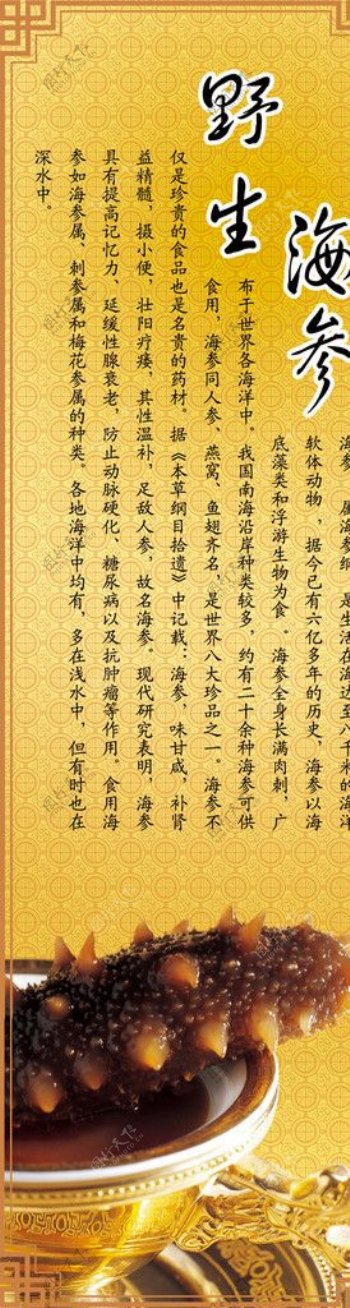 野生
海参
海参，属海参纲，是生活在海边至八千米的海洋
软体动物，据今已有六亿多年的历史，海参以海
底藻类和浮游生物为食。海参全身长满肉刺，广
布于世界各海洋中。我国南海沿岸种类较多，约有二十余种海参可供
食用，海参同人参、燕窝、鱼翅齐名，是世界八大珍品之一。海参不
仅是珍贵的食品也是名贵的药材。据《本草纲目拾遗》中记载：海参，味甘咸，补肾
益精髓，摄小便，壮阳疗痿，其性温补，足敌人参，故名海参。现代研究表明，海参
具有提高记忆力、延缓性腺衰老，防止动脉硬化、糖尿病以及抗肿瘤等作用。食用海
参如海参属、刺参属和梅花参属的种类。各地海洋中均有，多在浅水中，但有时也在
深水中。